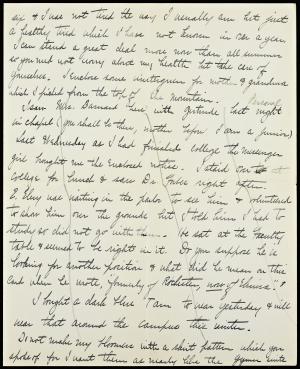 six & I use not tired the way I usually am but just
a healthy tired which I have not known in over a year.
I can stand a great deal more now than all summer
so you must not worry about my health but take care of
yourselves. I enclose some wintergreen for mother & grandma
which I picked from the top of the mountain.
I saw Mrs. Barnard here with Gertrude last night
in chapel (you shall be there, mother before I am a Junior)
Last Wednesday as I had finished college the messenger
girl brought me the enclosed notice. I staid over at
College for lunch & saw Dr. right after.
E. Ely was waiting in the parlor to see him & volunteered
to show him over the grounds but I told him I had to
study so did not go with them. He sat at the Faculty
table & seemed to be right in it. Do you suppose he is
looking for another position & what did he mean on this
card when he wrote, formerly of Rochester, now of "?
I bought a dark blue Tam to wear yesterday & will
wear that around the campus this winter.
Do not make my bloomers with a skirt pattern which you
spoke of for I want them as nearly like the gymn suits